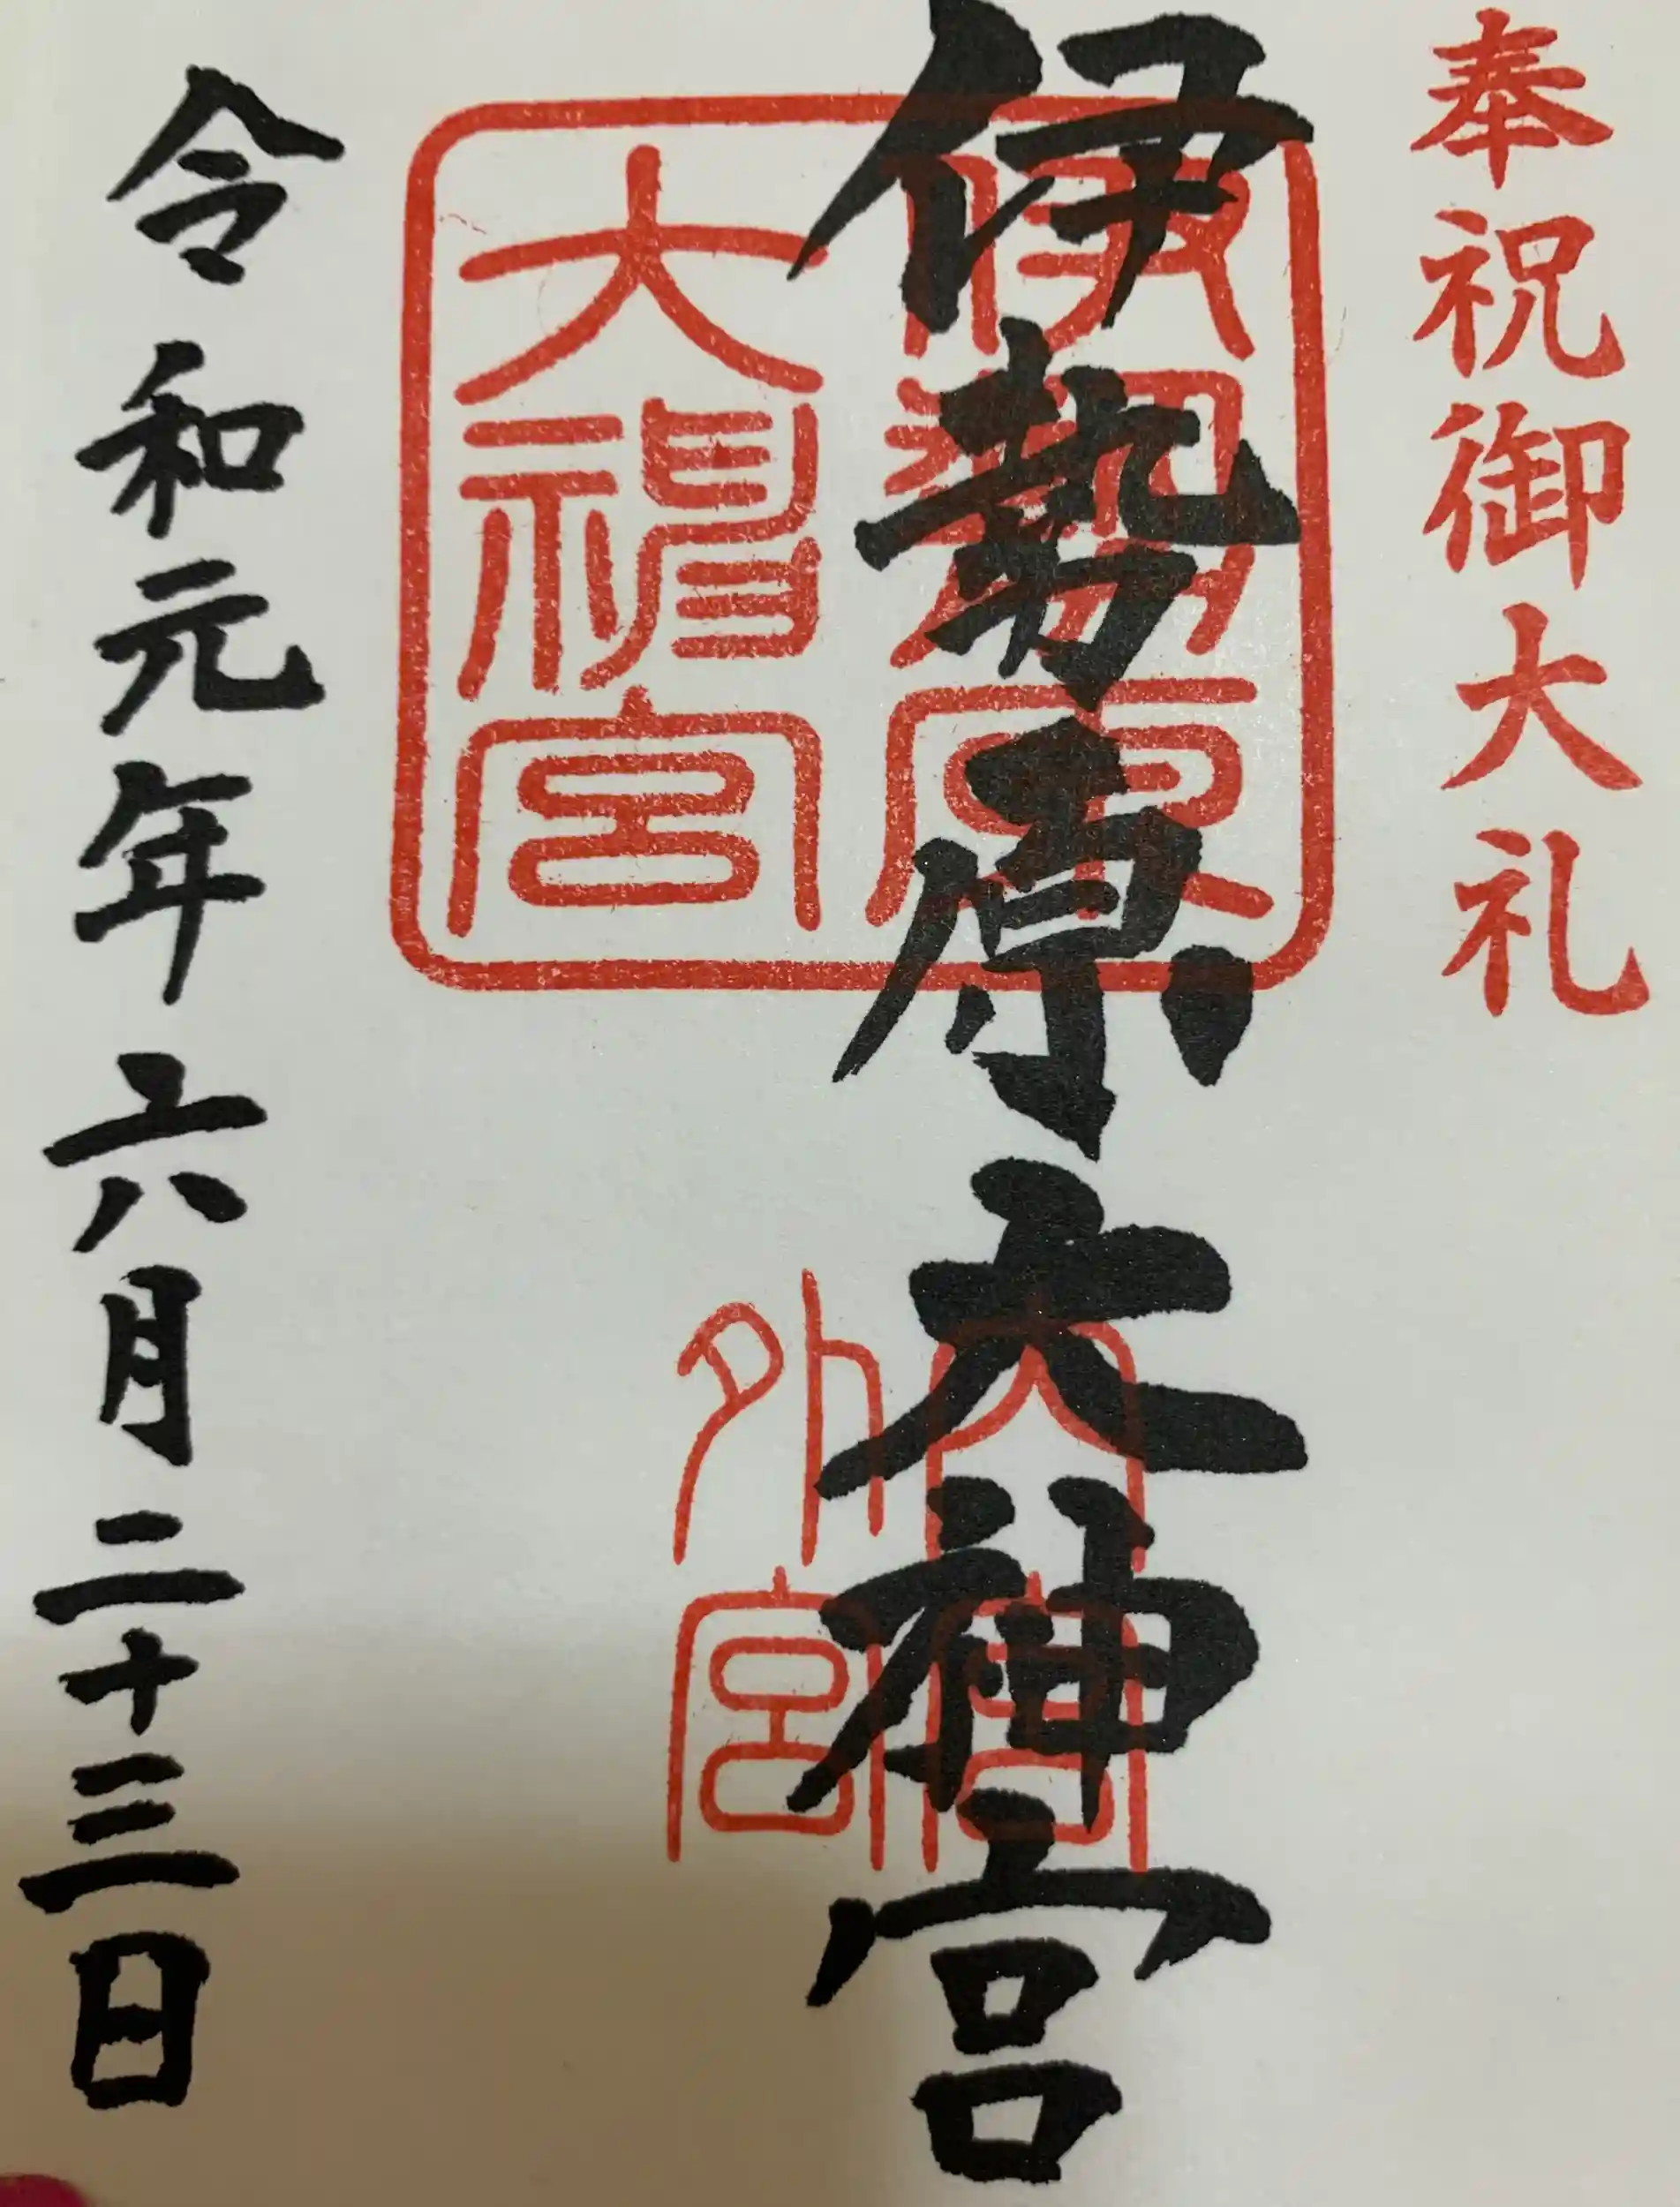 奉祝御大礼
伊勢原大神宮
伊勢原
大神宮
大神宮
外宮
令和元年六月二十三日